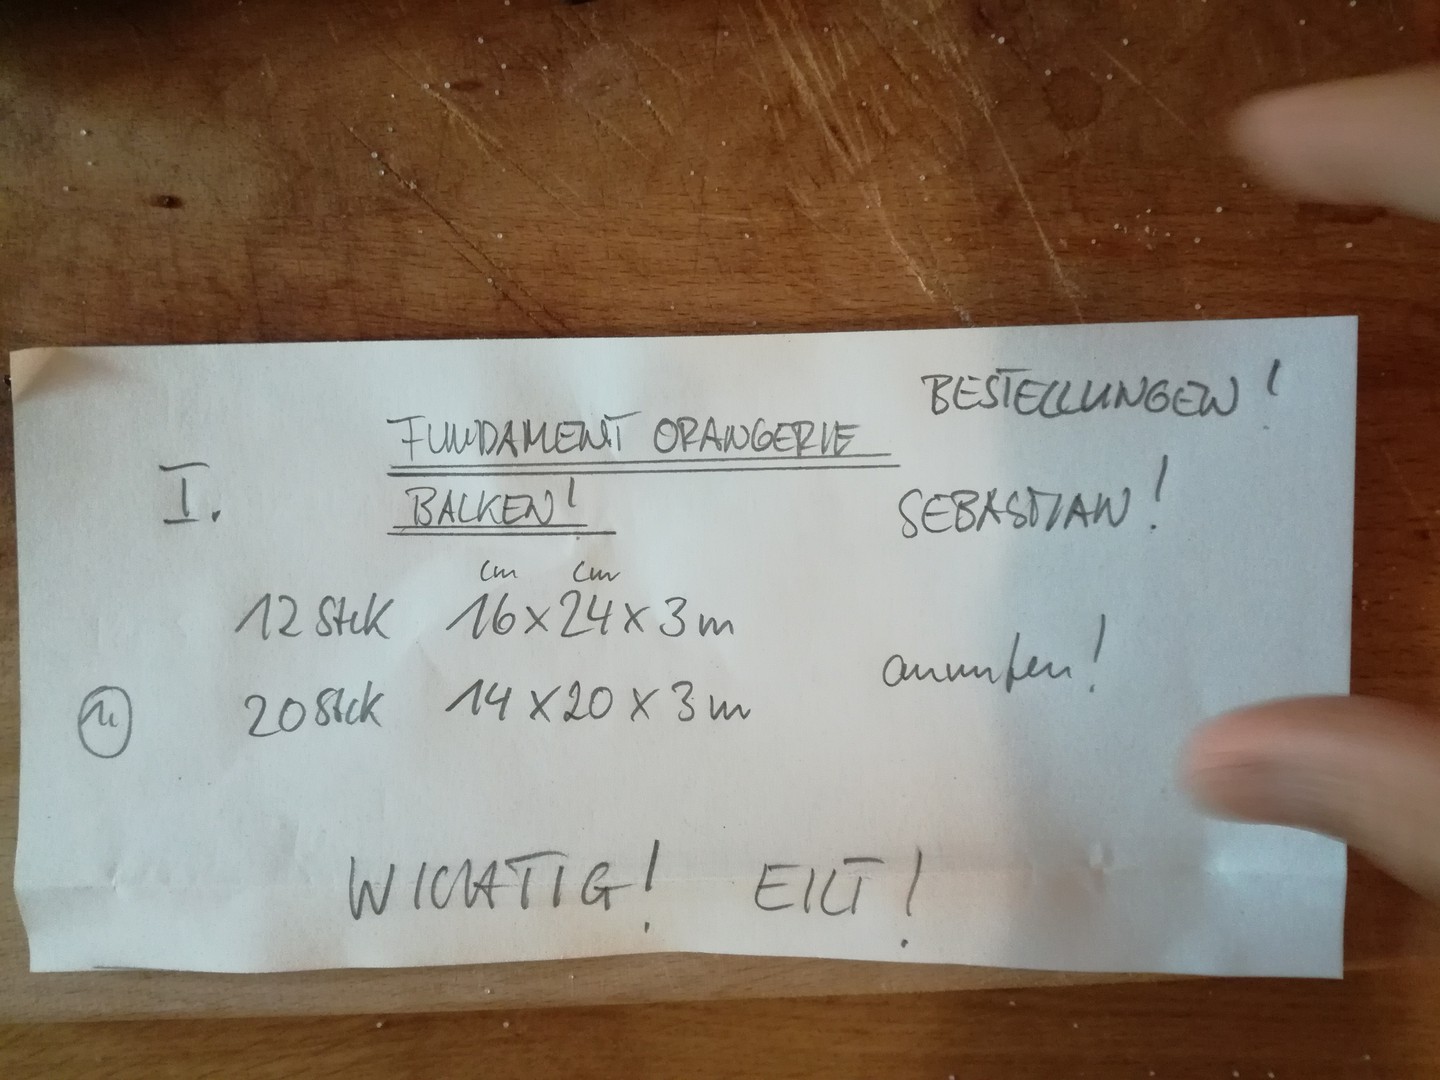 BESTELLUNGEN!
FUNDAMENT ORANGERIE
I.
BALKEN!
SEBASTIAN!
cm cm
12 Stck 16 x 24 x 3 m
anrufen!
20 Stck 14 x 20 x 3 m
WICHTIG! EILT!